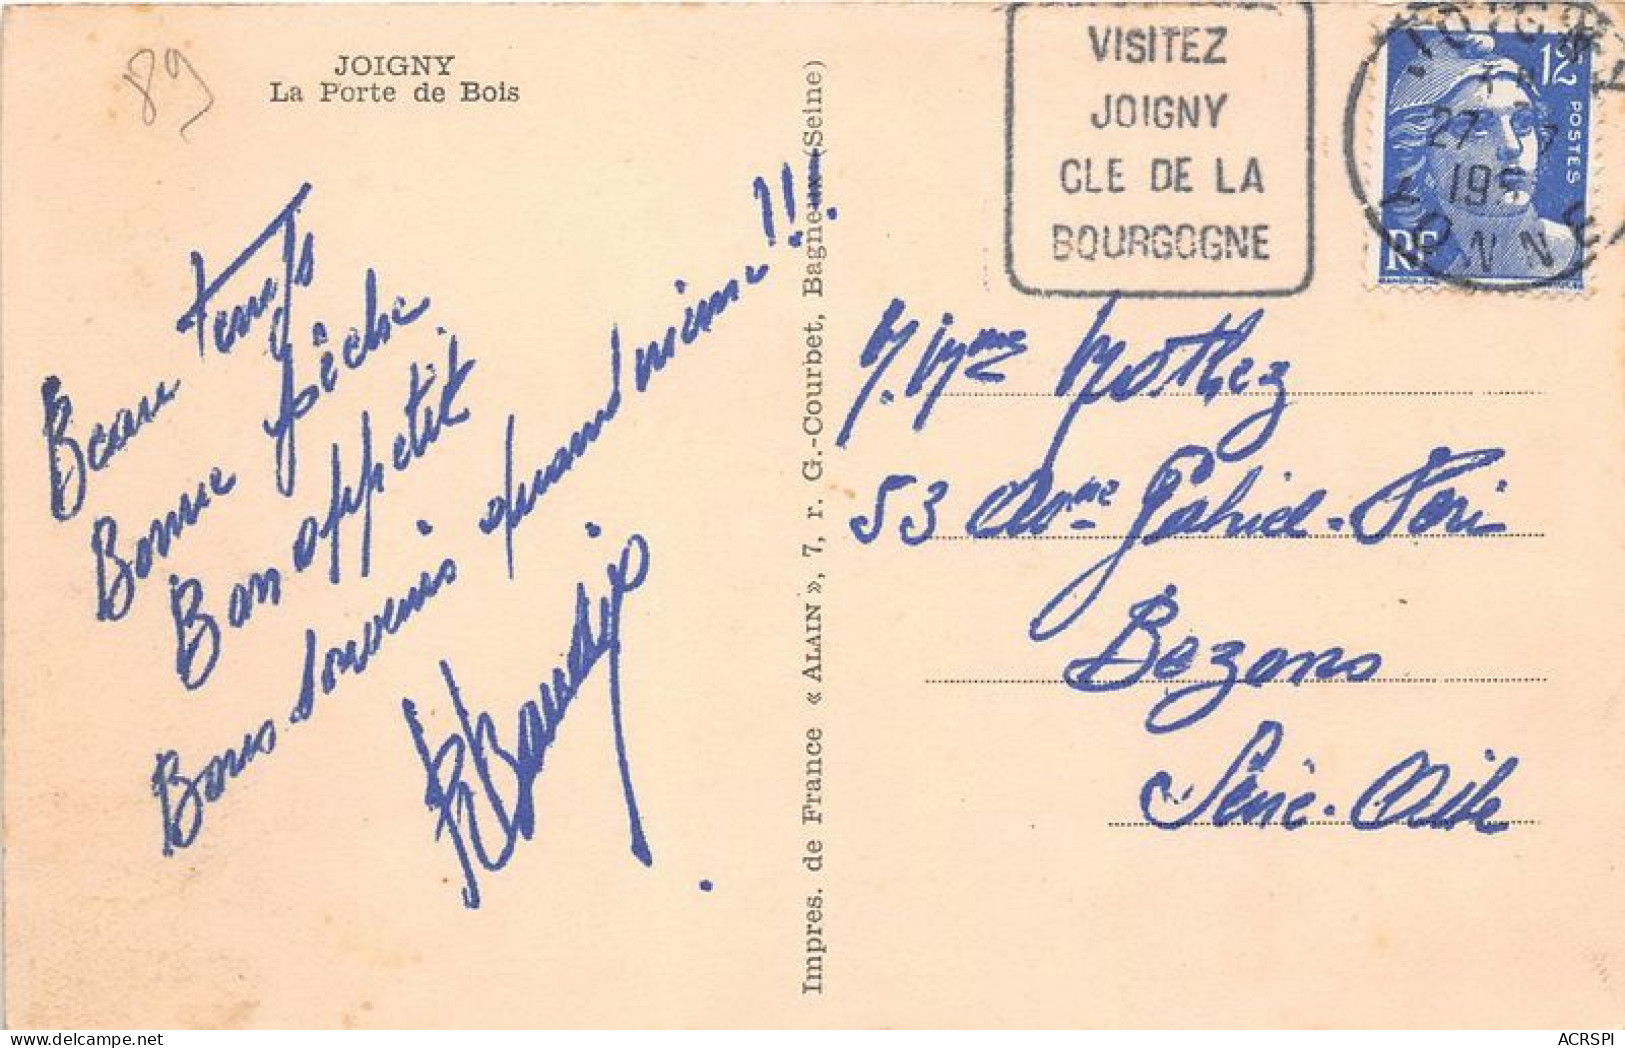 89
JOIGNY
La Porte de Bois
Beau temps
Bonne pêche
Bon appétit
Bons souvenirs quand même !!!
Impres. de France « ALAIN », 7, r. G.-Courbet, Bagneux (Seine)
VISITEZ
JOIGNY
CLE DE LA
BOURGOGNE
JOIGNY
27 7
195
YONNE
12
POSTES
RF
M. Mme Mothez
53 Avnue Gabriel-Péri
Bezons
Seine-Oise
ACRSPI